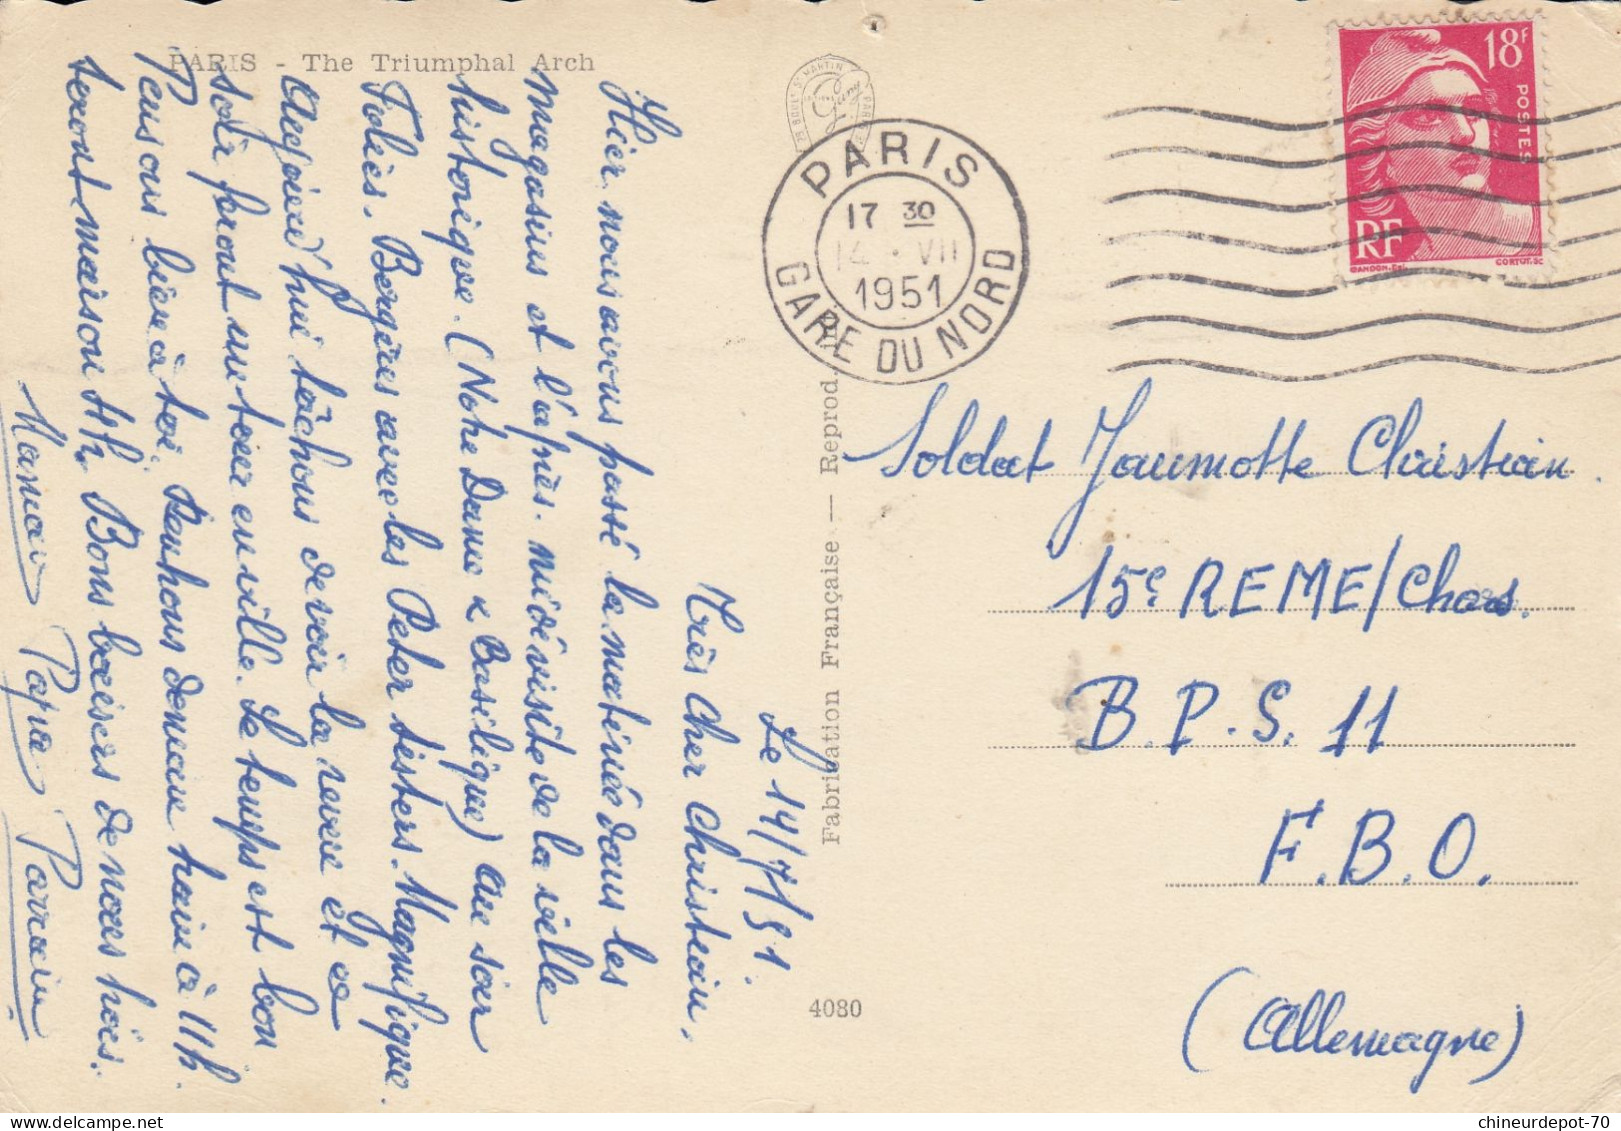 PARIS - The Triumphal Arch
Le 14/7/51.
Très cher Christian,
Hier, nous avons passé la matinée dans les
magasins et l'après-midi visite de la ville
historique. (Notre Dame & Basilique) au soir
Folies-Bergères avec les Peter sisters. Magnifique.
Aujourd'hui tâchons de voir la revue et ce
soir feront un tour en ville. Le temps est bon
Pensons bien à toi. Partirons demain train à 11h
serons maison 4h. Bons baisers de nous trois.
Maman Papa Parrain
Fabrication Française — Reprod.
4080
BOULT ST MARTIN
PARIS
PARIS
17 30
14 · VII
1951
GARE DU NORD
18F
POSTES
RF
GANDON.
CORTOT.SC
Soldat Jaumotte Christian.
15e REME/Chars.
B.P.S. 11
F.B.O.
(Allemagne)
chineurdepot-70